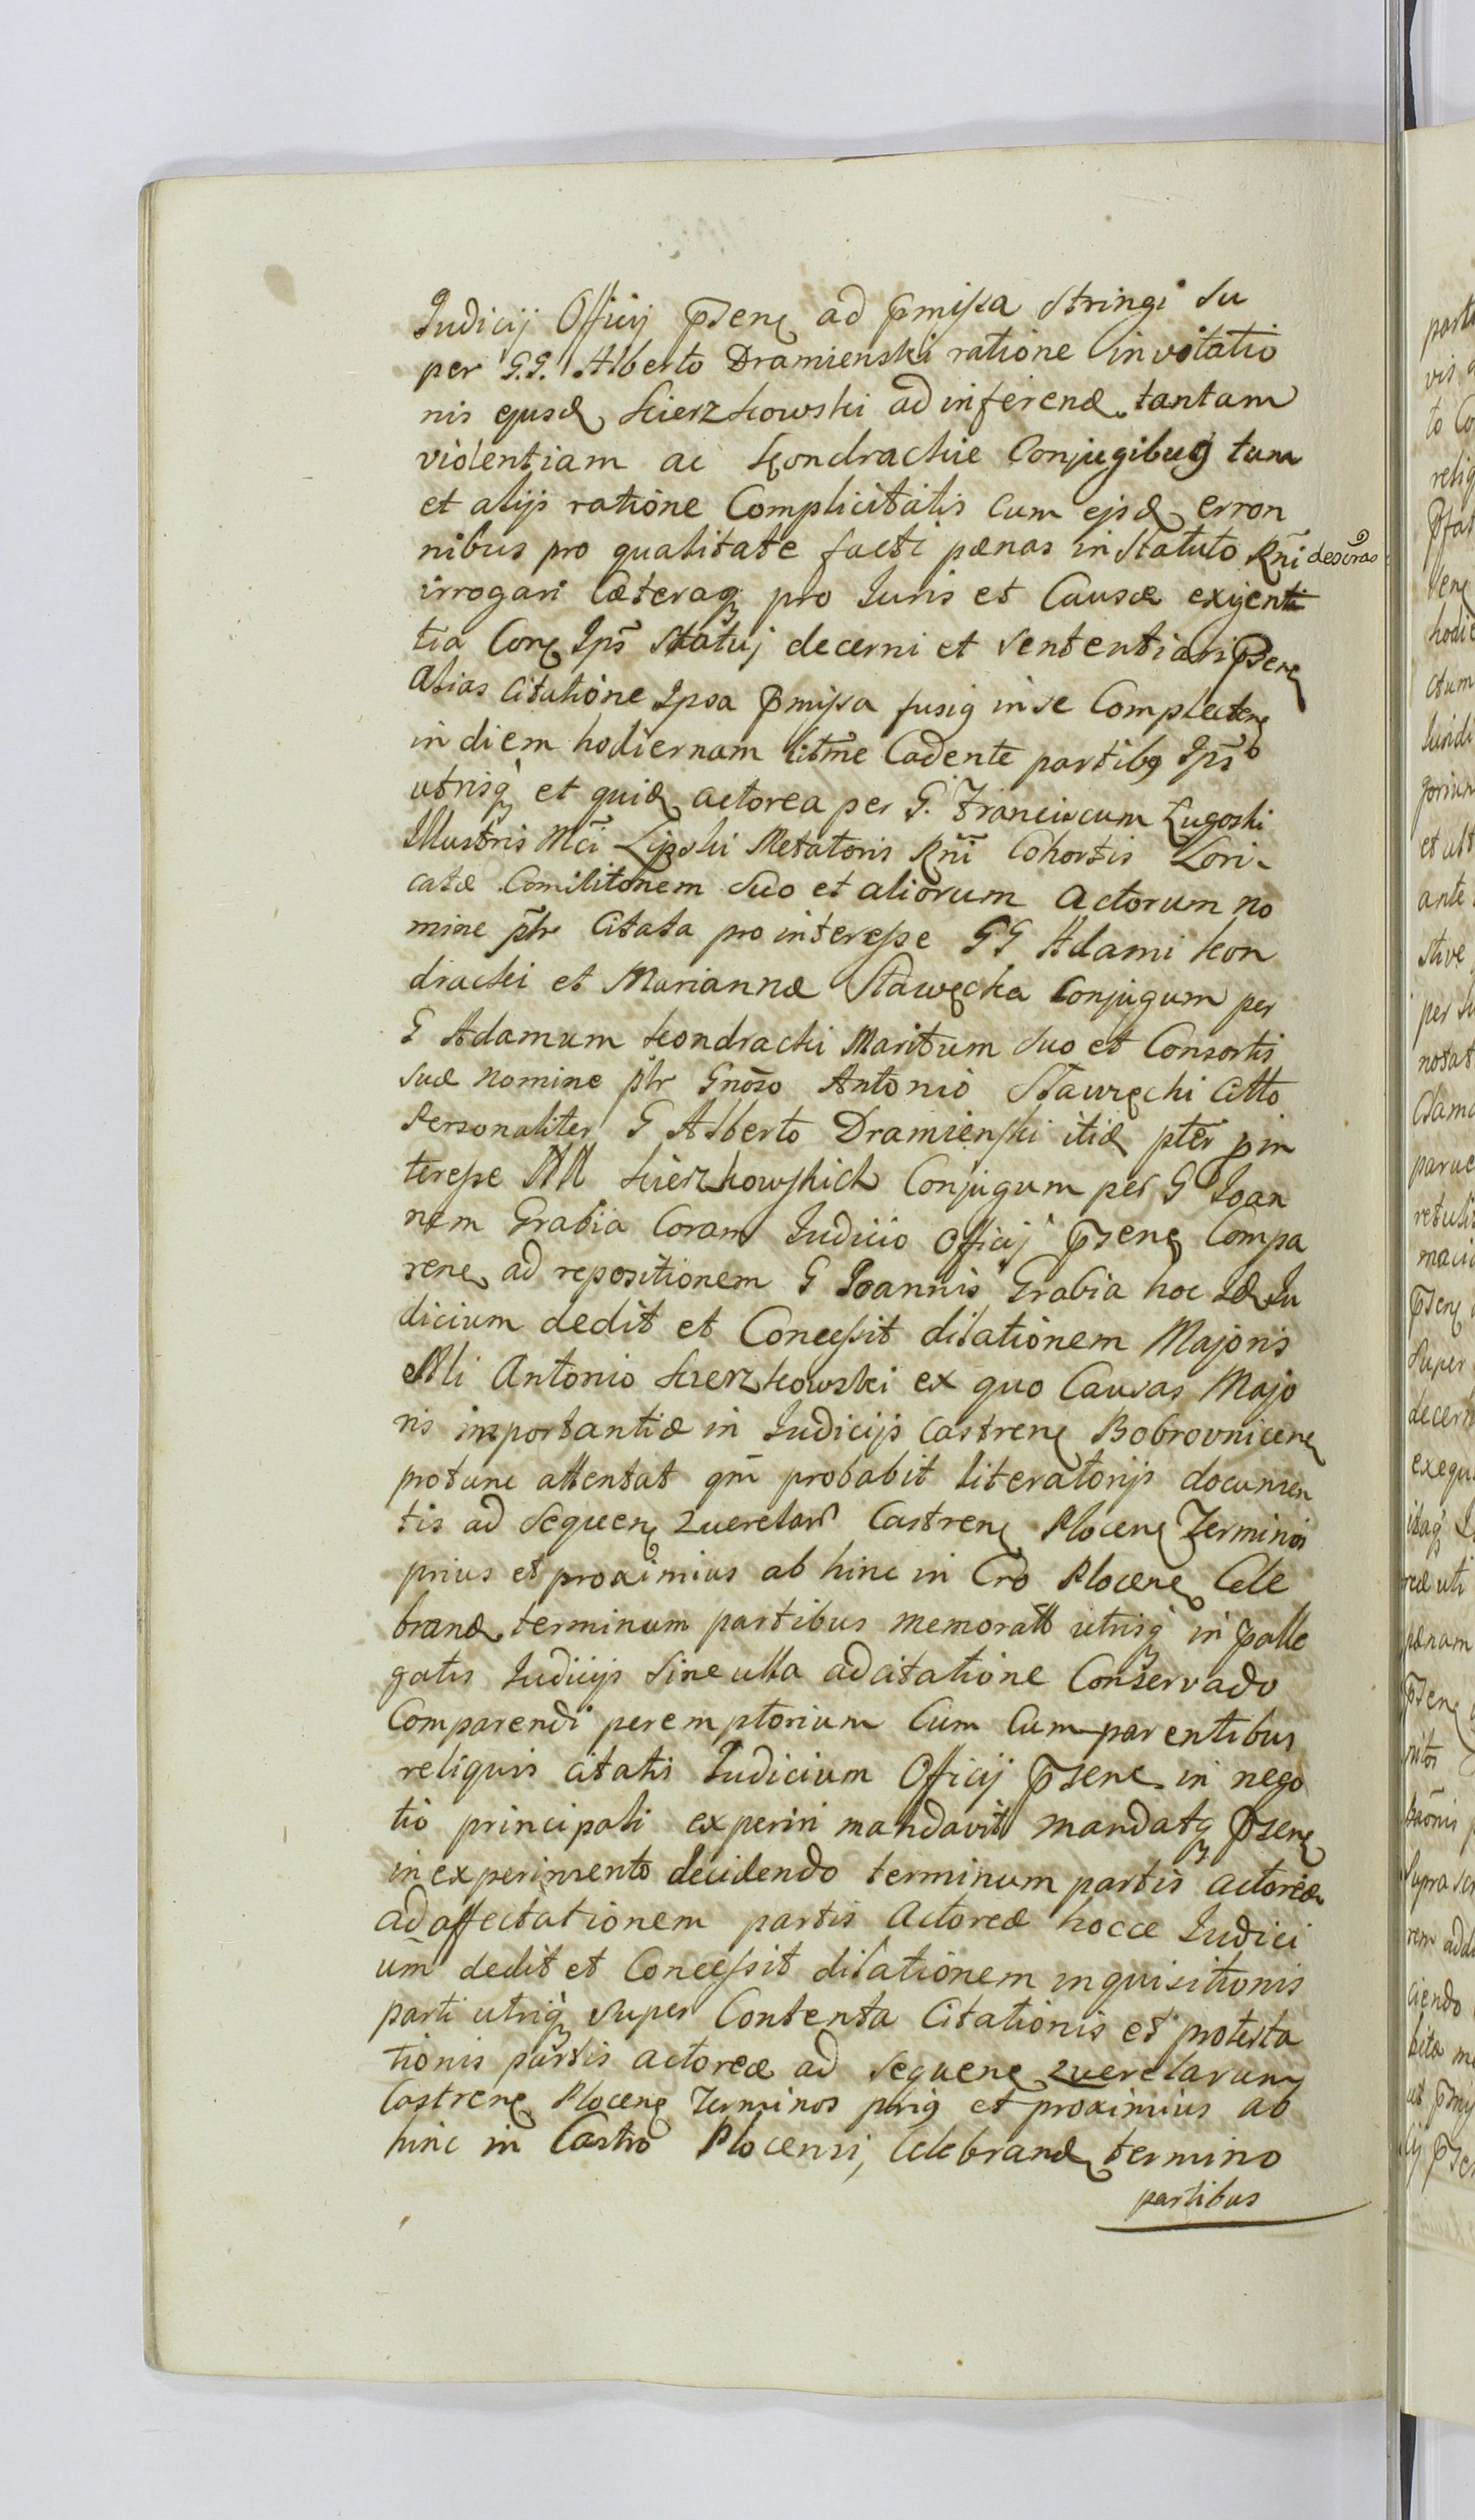 Iudicij Officij pseñ ad pmissa stringi su
per G.G. Alberto Dramienski ratione invitatio
nis ejusd Kierzkowski ad inferend tantam
violentiam ac Kondrackie Conjugibus tum
et alijs ratione Complicitatis cum ejsd erron
nibus pro qualitate facti pænas in Statuto Rñi descras
irrogari Cæteraq pro Iuris et Causæ exigenti
tia Conz Ips̃ statuj decerni et sententiari pseñ
alias Citatione Ipsa pmissa fusig in se Complecteñ
in diem hodiernam litm̃e Cadente partibg Ips̃
utrisq et quid actorea per G. Franciscum Lugoski
Illustris Mci Lipski Metatoris Rñi Cohortis Lori-
catæ Comilitonem suo et aliorum actorum no
mine ptr Citata pro interesse GG Adami Kon
dracki et Mariannæ Stawęcka Conjugum per
G Adamum Kondracki Maritum suo et Consortis
suæ nomine ptr Gnoso Antonio Stawęcki Ctto
Personaliter G Alberto Dramienski itid pter pin
teresse MM Kierzkowskich Conjugum per G Ioan
nem Grabia Coram Iudicio Officij pseñ Compa
reñ ad repositionem G Ioannis Grabia hoc Id Iu
dicium dedit et Concessit dilationem Majoris
Mli Antonio Kierzkowski ex quo Causas Majo
ris importantiæ in Iudicijs Castreñ Bobrovniceñ
protunc attentat qm̃ probabit literatorijs documen
tis ad Sequeñ Querelar Castreñ Ploceñ Terminos
prius et proximius ab hinc in Cro Ploceñ Cele
brand terminum partibus memoratt utrisq in palle
gatis Iudicijs sine ulla adcitatione Conservado
Comparendi peremptorium Cum Cum parentibus
reliquis citatis Iudicium Officij pseñ in nego
tio principali experiri mandavit mandatq pseñ
in experimento decidendo terminum partis actoreæ
ad affectationem partis Actoreæ hocce Iudici
um dedit et Concessit dilationem inquisitionis
parti utriq super Contenta Citationis et protesta
tionis partis actoreæ ad sequeñ querelarum
Castreñ Ploceñ Terminos prig et proximius ab
hinc in Castro Plocensi, Celebrand termino
partibus